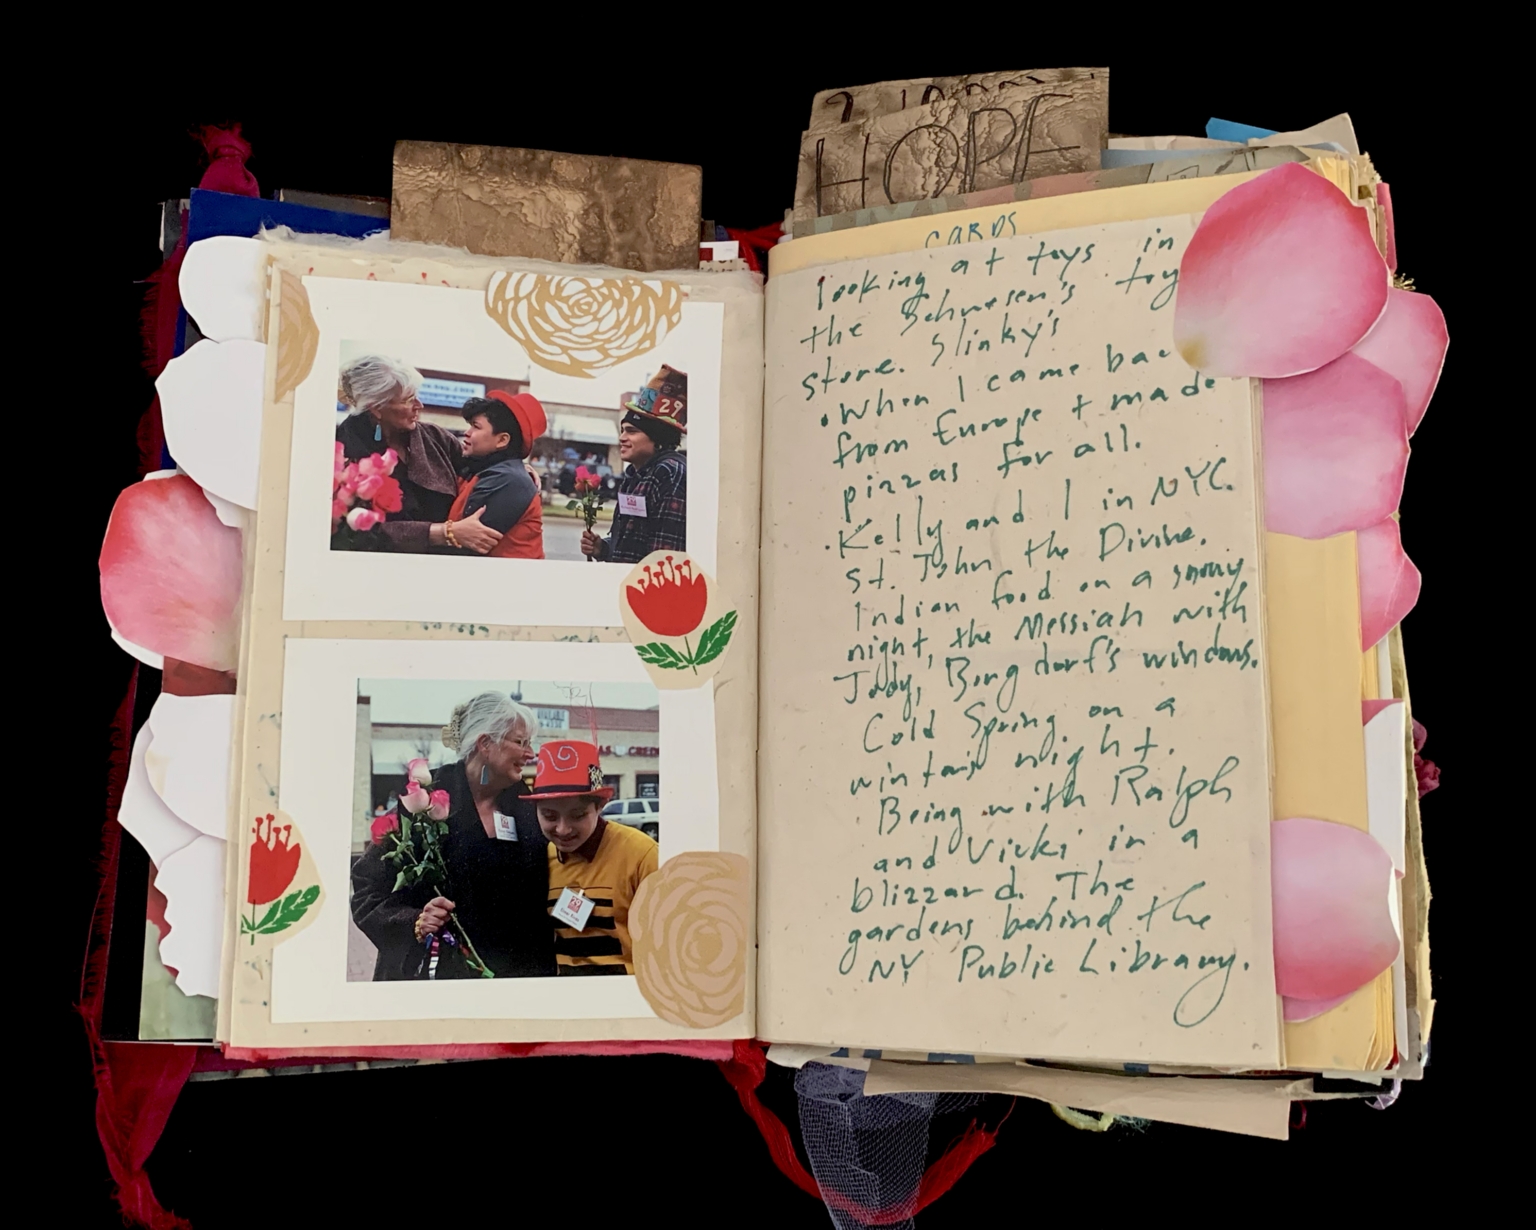 HOPE
CARDS
looking at toys in
the Schwesen's toy
store. Slinky's
• When I came back
from Europe + made
pizzas for all.
• Kelly and I in NYC.
St. John the Divine.
Indian food on a snowy
night, the Messiah with
Jody, Bergdorf's windows.
Cold Spring on a
night.
Being with Ralph
and Vicki in a
blizzard. The
gardens behind the
NY Public Library.
29
AVAILABLE
29